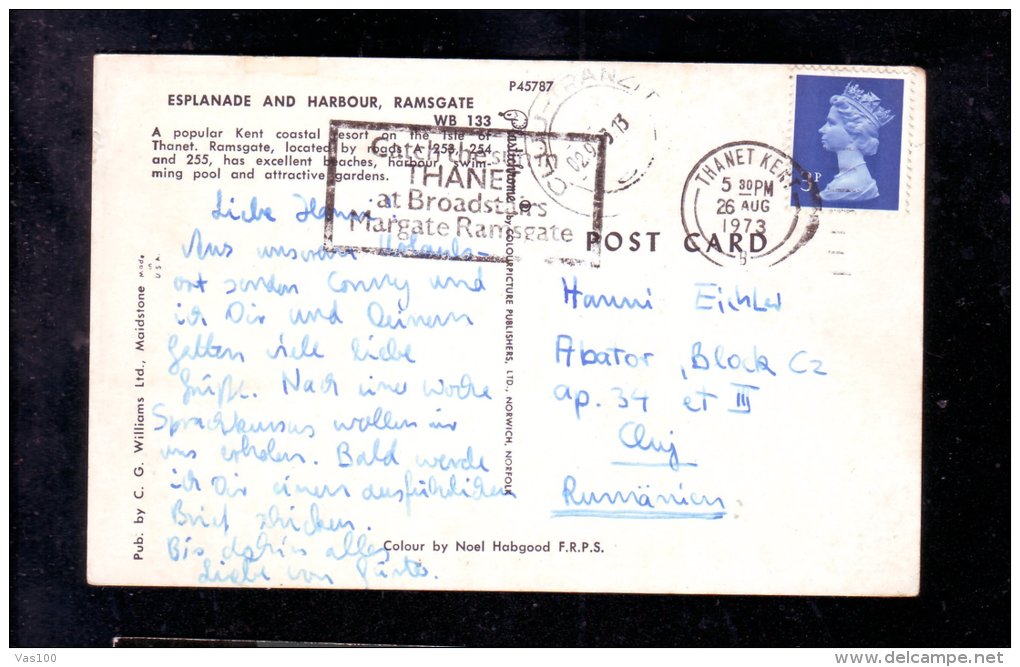 P45787
ESPLANADE AND HARBOUR, RAMSGATE
WB 133
A popular Kent coastal resort on the Isle of
Thanet. Ramsgate, located by roads A 253, 254
and 255, has excellent beaches, harbour, swim-
ming pool and attractive gardens.
Catch the sun
THANET
at Broadstairs
Margate Ramsgate
CLUJ-TRANZIT
02.9.73 13
THANET KENT
5 30 PM
26 AUG
1973
B
3P
POST CARD
Plastichrome ®
by COLOURPICTURE PUBLISHERS, LTD., NORWICH, NORFOLK
Pub. by C. G. Williams Ltd., Maidstone
Made in U.S.A.
Liebe Hanni
Aus unserem Urlaubs-
ort senden Conny und
ich Dir und Deinem
Gatten viele liebe
Grüße. Nach einer Woche
Sprachkursus wollen wir
uns erholen. Bald werde
ich Dir einen ausführlichen
Brief schicken.
Bis dahin alles
Liebe von
Hanni Eichler
Abator, Block C2
ap. 34 et III
Cluj
Rumänien.
Colour by Noel Habgood F.R.P.S.
Vas100
delcampe.net